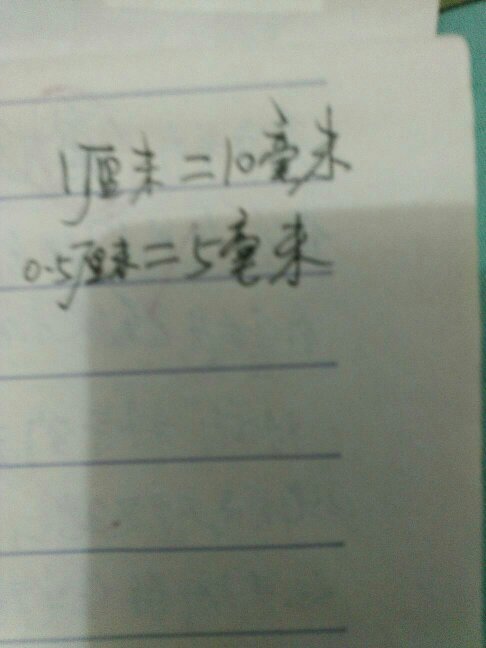 1厘米=10毫米
0.5厘米=5毫米